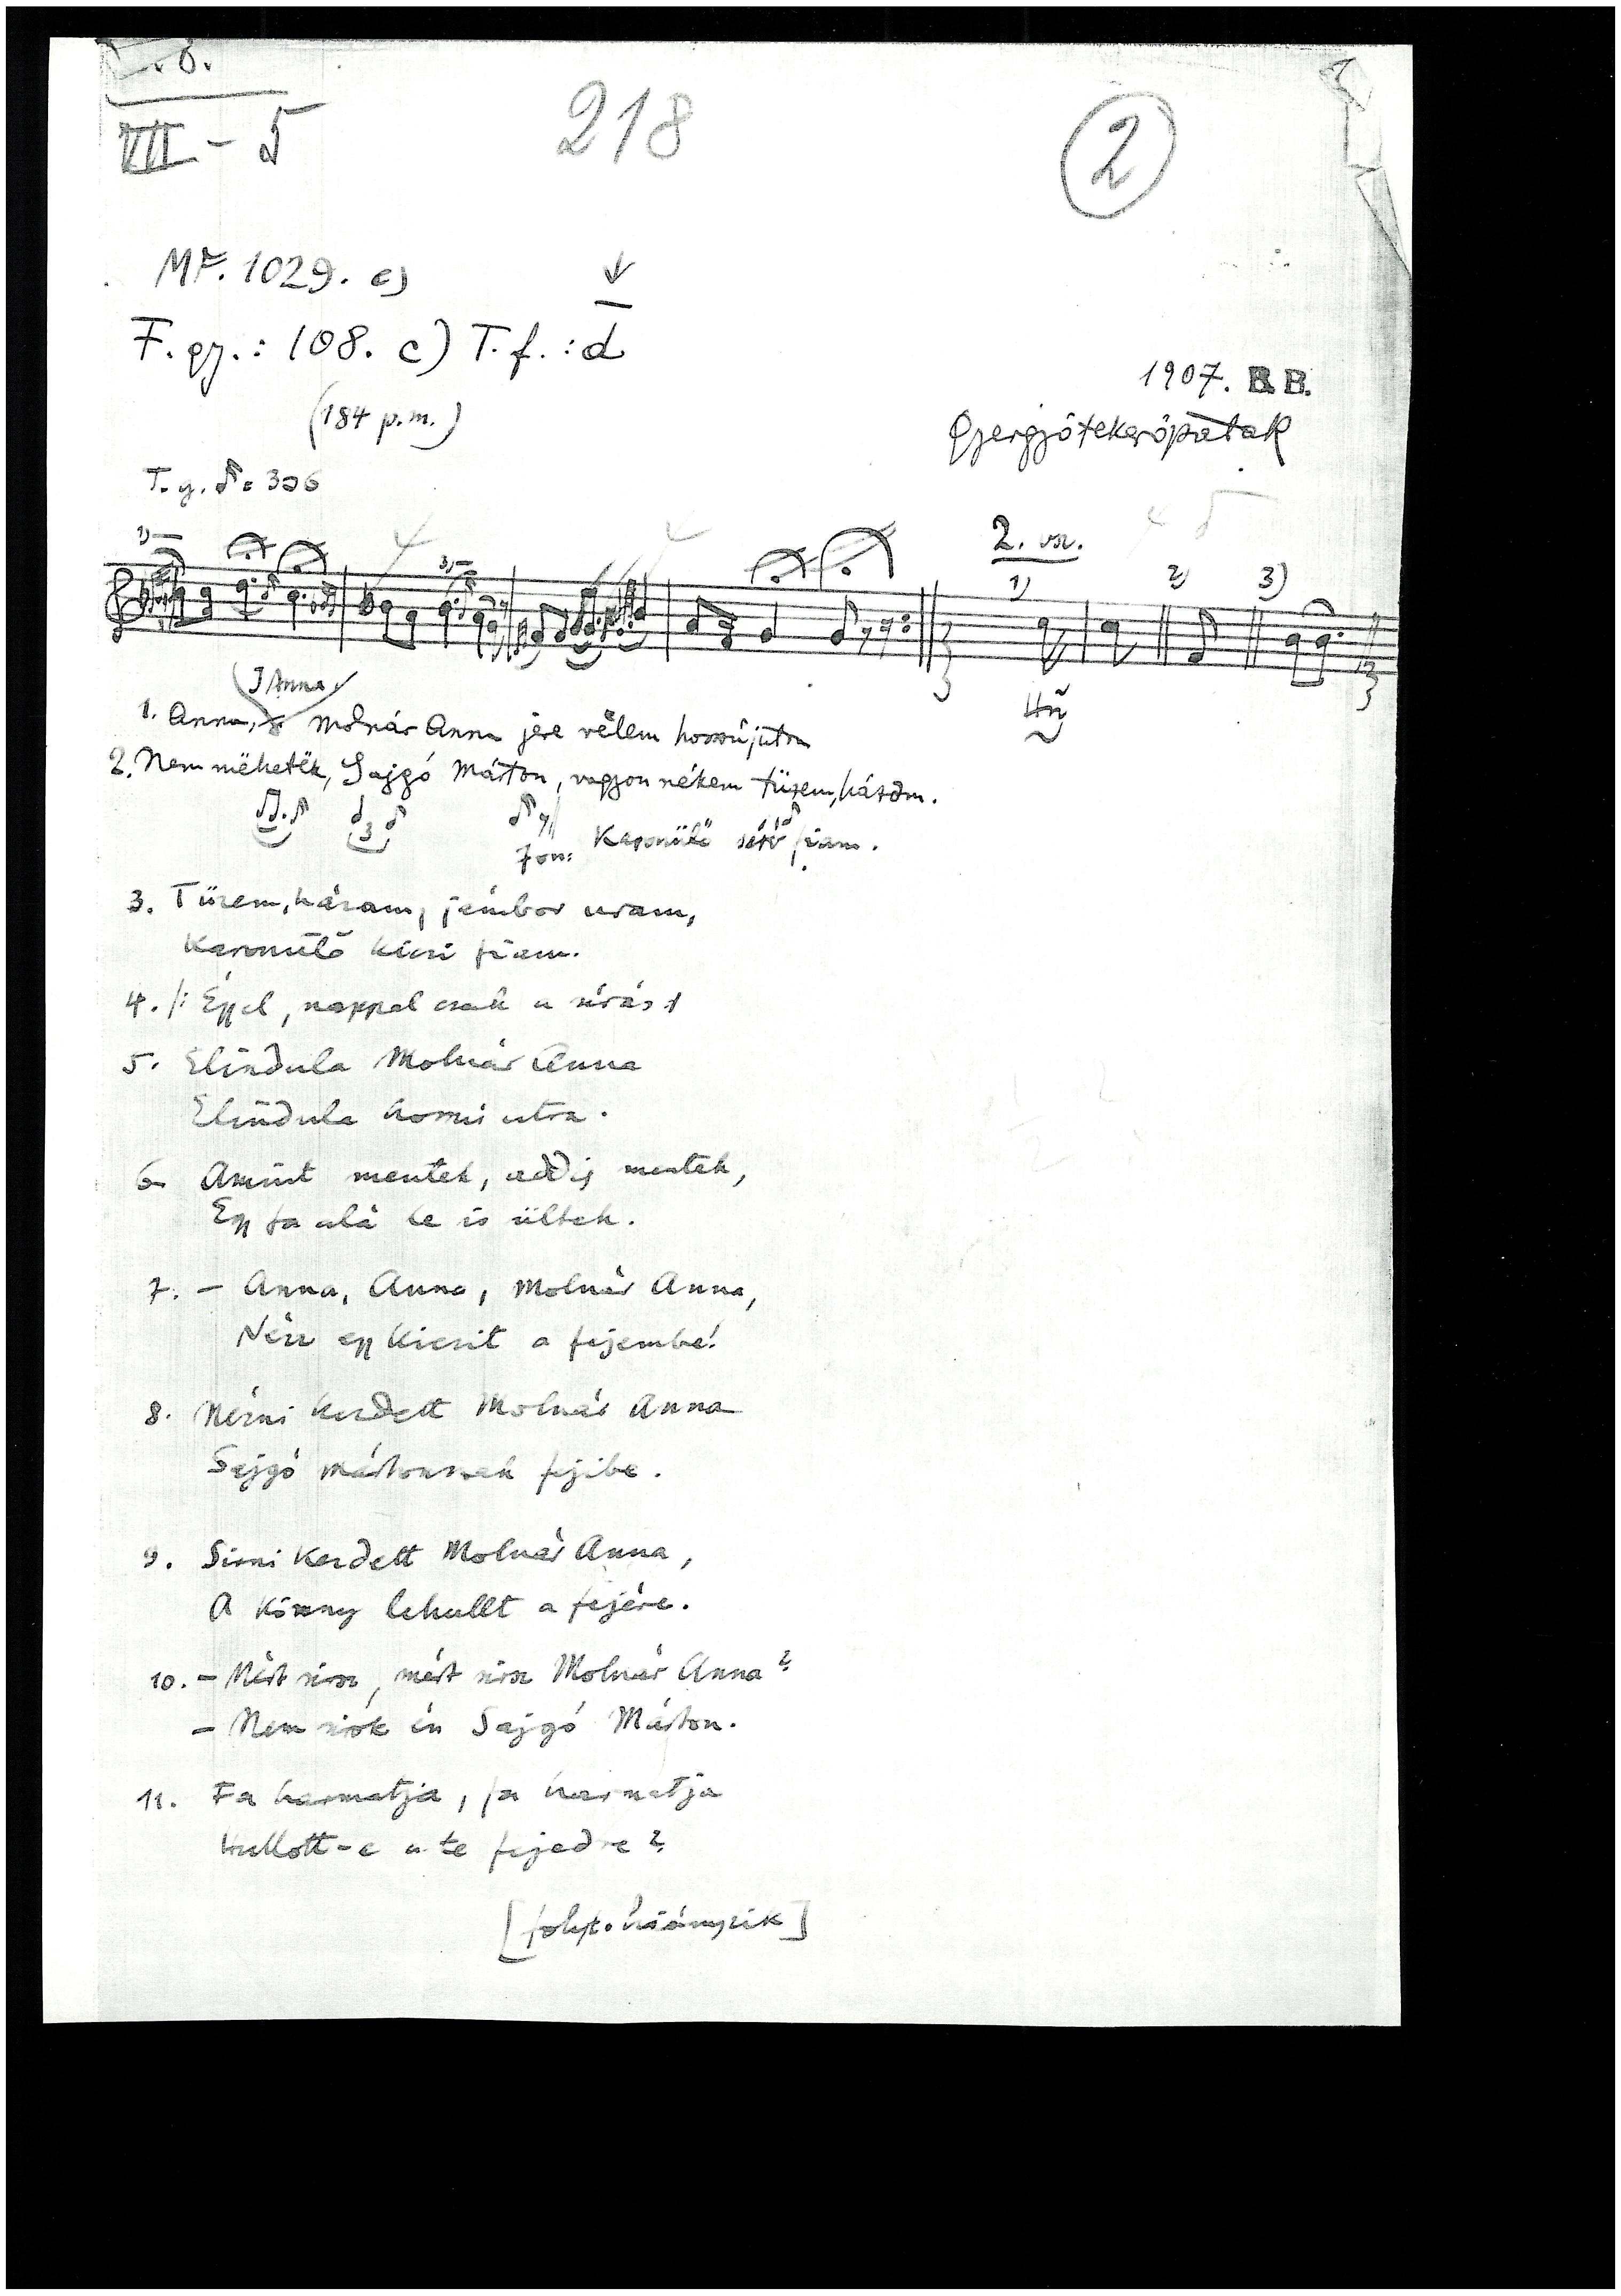 VII - 5
218
2
MF. 1029. c)
F. gy.: 108. c) T. f.: d
(184 p.m.)
1907. B.B.
Gyergyótekerőpatak
T. gy. ♪ = 306
2. vsz.
1) 2) 3)
Anna,
1. Anna, Molnár Anna jere vélem hosszújútra
2. Nem mëhetëk, Sajgó Márton, vagyon nékem tüzem, házom.
Karonülő síró fiam.
3. Tüzem, házam, jámbor uram,
Karonülő kicsi fiam.
4. /: Éjjel, nappal csak a sírás :/
5. Elindula Molnár Anna
Elindula hosszú utra.
6. Amint mentek, addig mentek,
Egy fa alá le is ültek.
7. – Anna, Anna, Molnár Anna,
Nézz egy kicsit a fejembe!
8. Nézni kezdett Molnár Anna
Sajgó Mártonnak fejibe.
9. Sírni kezdett Molnár Anna,
A könny lehullt a fejére.
10. – Mért sírsz, mért sírsz Molnár Anna?
– Nem sírok én Sajgó Márton.
11. Fa harmatja, fa harmatja
Hullott-e a te fejedre?
[folyt. hiányzik]